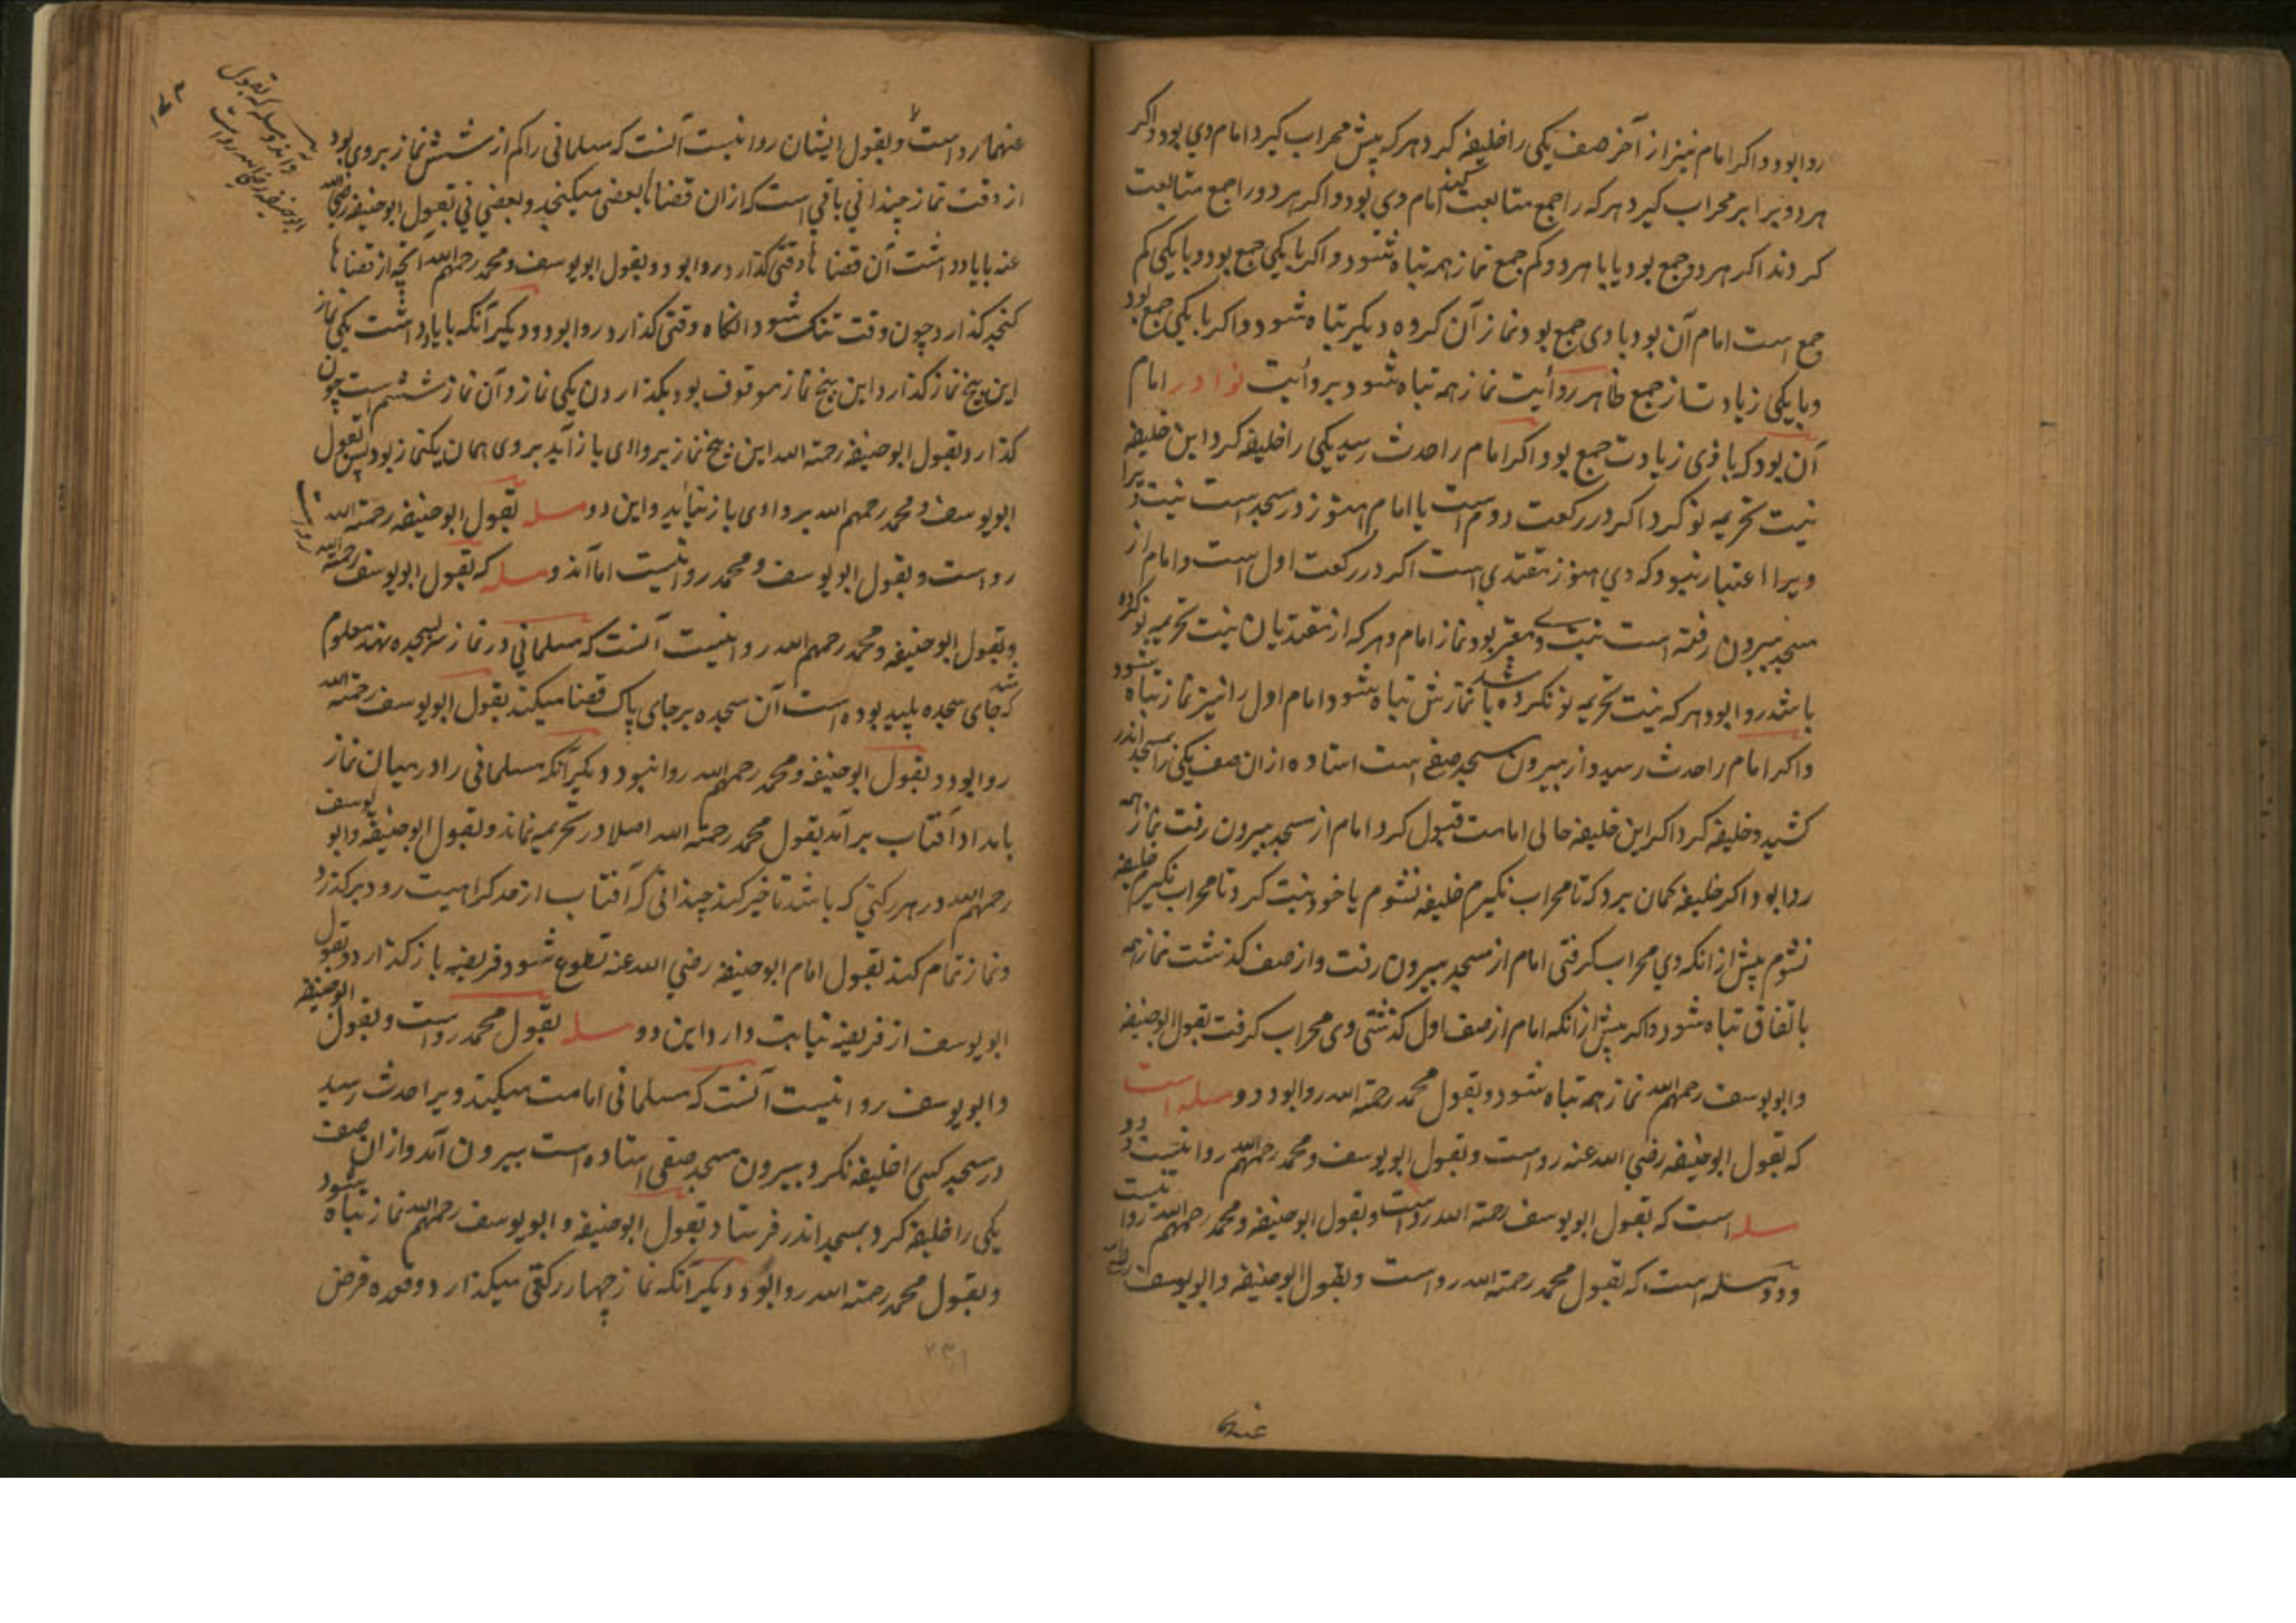 روا بود و اکر امام نیز از آخر صف یکی را خلیفه کرد هر که پیش محراب کیرد امام وی بود و اکر
هر دو برابر محراب کیرد هر که را جمع متابعت کنند امام وی بود و اکر هر دو را جمع متابعت
کردند اکر هر دو جمع بود یا با هر دو کم جمع نماز همه تباه شود و اکر با یکی جمع بود و با یکی کم
جمع است امام آن بود با وی جمع بود نماز آن کروه دیکر تباه شود و اکر با یکی جمع بود
و با یکی زیادت از جمع ظاهر روایت نماز همه تباه شود بروایت نوادر امام
آن بود که با وی زیادت جمع بود اکر امام را حدث رسید یکی را خلیفه کرد این خلیفه
نیت تحریمه نو کرد اکر در رکعت دوم است یا امام هنوز در مسجد است نیت
ویرا اعتبار نبود که وی هنوز مقتدی است اکر در رکعت اول است و امام از
مسجد بیرون رفته است نیت وی معتبر بود نماز امام و هر که از مقتدیان نیت تحریمه نو کرده
باشد روا بود هر که نیت تحریمه نو نکرده باشد نمازش تباه شود و امام اول را نیز نماز تباه شود
و اکر امام را حدث رسید و از بیرون مسجد صفی است استاده از ان صف یکی را بمسجد اندر
کشید و خلیفه کرد اکر این خلیفه حالی امامت قبول کرد و امام از مسجد بیرون رفت نماز همه
روا بود اکر خلیفه کمان برد که تا محراب نکیرم خلیفه نشوم یا خود نیت کرد تا محراب نکیرم خلیفه
نشوم پیش از انکه وی محراب کرفتی امام از مسجد بیرون رفت و از صف کذشت نماز همه
باتفاق تباه شود و اکر پیش از انکه امام از صف اول کذشتی وی محراب کرفت بقول ابوحنیفه
و ابویوسف رحمهم الله نماز همه تباه شود و بقول محمد رحمة الله روا بود دو مسله است
که بقول ابوحنیفه رضی الله عنه رواست و بقول ابویوسف و محمد رحمهم الله روا نیست و دو
مسله است که بقول ابویوسف رحمة الله رواست و بقول ابوحنیفه و محمد رحمهم الله روا نیست
و دو مسله است که بقول محمد رحمة الله رواست و بقول ابوحنیفه و ابویوسف
عنهما
عنهما رواست و بقول ایشان روا نیست آنست که مسلمانی را کم از شش نماز بر وی بود
از وقت نماز چندانی باقی است که از ان قضاها بعضی میکنجد و بعضی نی بقول ابوحنیفه رضی الله
عنه با یادداشت آن قضاها وقتی کذارد روا بود و بقول ابویوسف و محمد رحمهم الله آنچه از قضاها
کنجد کذارد چون وقت تنک شود آنکاه وقتی کذارد روا بود و دیکر آنکه با یادداشت یکی نماز
این پنج نماز کذارد این پنج نماز موقوف بود بکذاردن یکی نماز و آن نماز ششم است چون
کذارد و بقول ابوحنیفه رحمة الله این پنج نماز بروایی باز آید بر وی همان یک نماز بود پس بقول
ابویوسف و محمد رحمهم الله بروایی باز نیاید و این دو مسله بقول ابوحنیفه رحمة الله
رواست و بقول ابویوسف و محمد روا نیست اما آن دو مسله که بقول ابویوسف رحمة الله
رواست
و بقول ابوحنیفه و محمد رحمهم الله روا نیست آنست که مسلمانی در نماز سر بسجده نهد معلوم شد
که جای سجده پلید بوده است آن سجده بر جای پاک قضا میکند بقول ابویوسف رحمة الله
روا بود و بقول ابوحنیفه و محمد رحمهم الله روا نبود و دیکر آنکه مسلمانی را در میان نماز
بامداد آفتاب برآمد بقول محمد رحمة الله اصلا در تحریمه نماند و بقول ابوحنیفه و ابو یوسف
رحمهم الله در هر رکنی که باشد تاخیر کند چندانی که آفتاب از حد کراهیت رود برکذرد
و نماز تمام کند بقول امام ابوحنیفه رضی الله عنه تطوع شود فریضه باز کذارد و بقول
ابویوسف از فریضه نیابت دارد این دو مسله بقول محمد رواست و بقول ابوحنیفه
و ابویوسف روا نیست آنست که مسلمانی امامت میکند ویرا حدث رسید
در مسجد کسی را خلیفه نکرد بیرون مسجد صفی استاده است بیرون آمد و از ان صف
یکی را خلیفه کرد بمسجد اندر فرستاد بقول ابوحنیفه و ابویوسف رحمهم الله نماز تباه شود
و بقول محمد رحمة الله روا بود و دیکر آنکه نماز چهار رکعتی میکذارد و قعده فرض
و آن دو مسله که بقول
ابوحنیفه رضی الله رواست